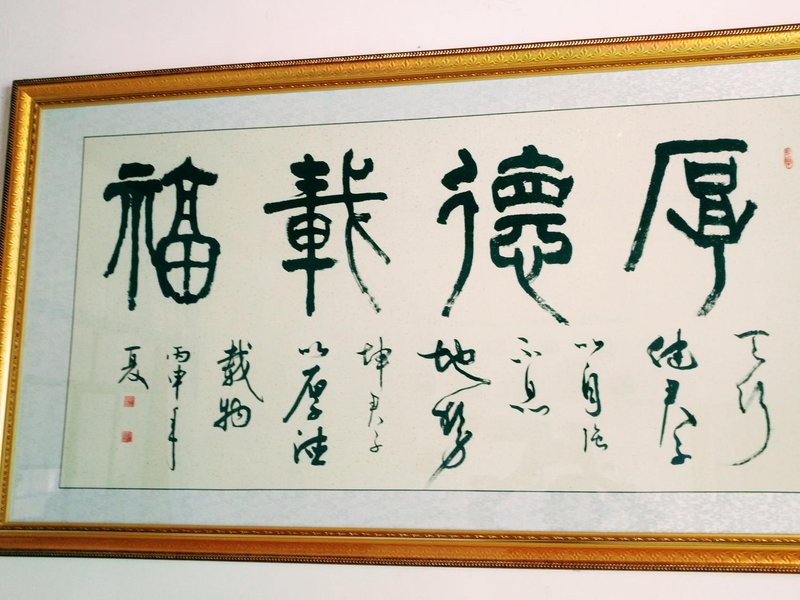 厚德载福
天行
健君子
以自强
不息
地势
坤君子
以厚德
载物
丙申年
夏